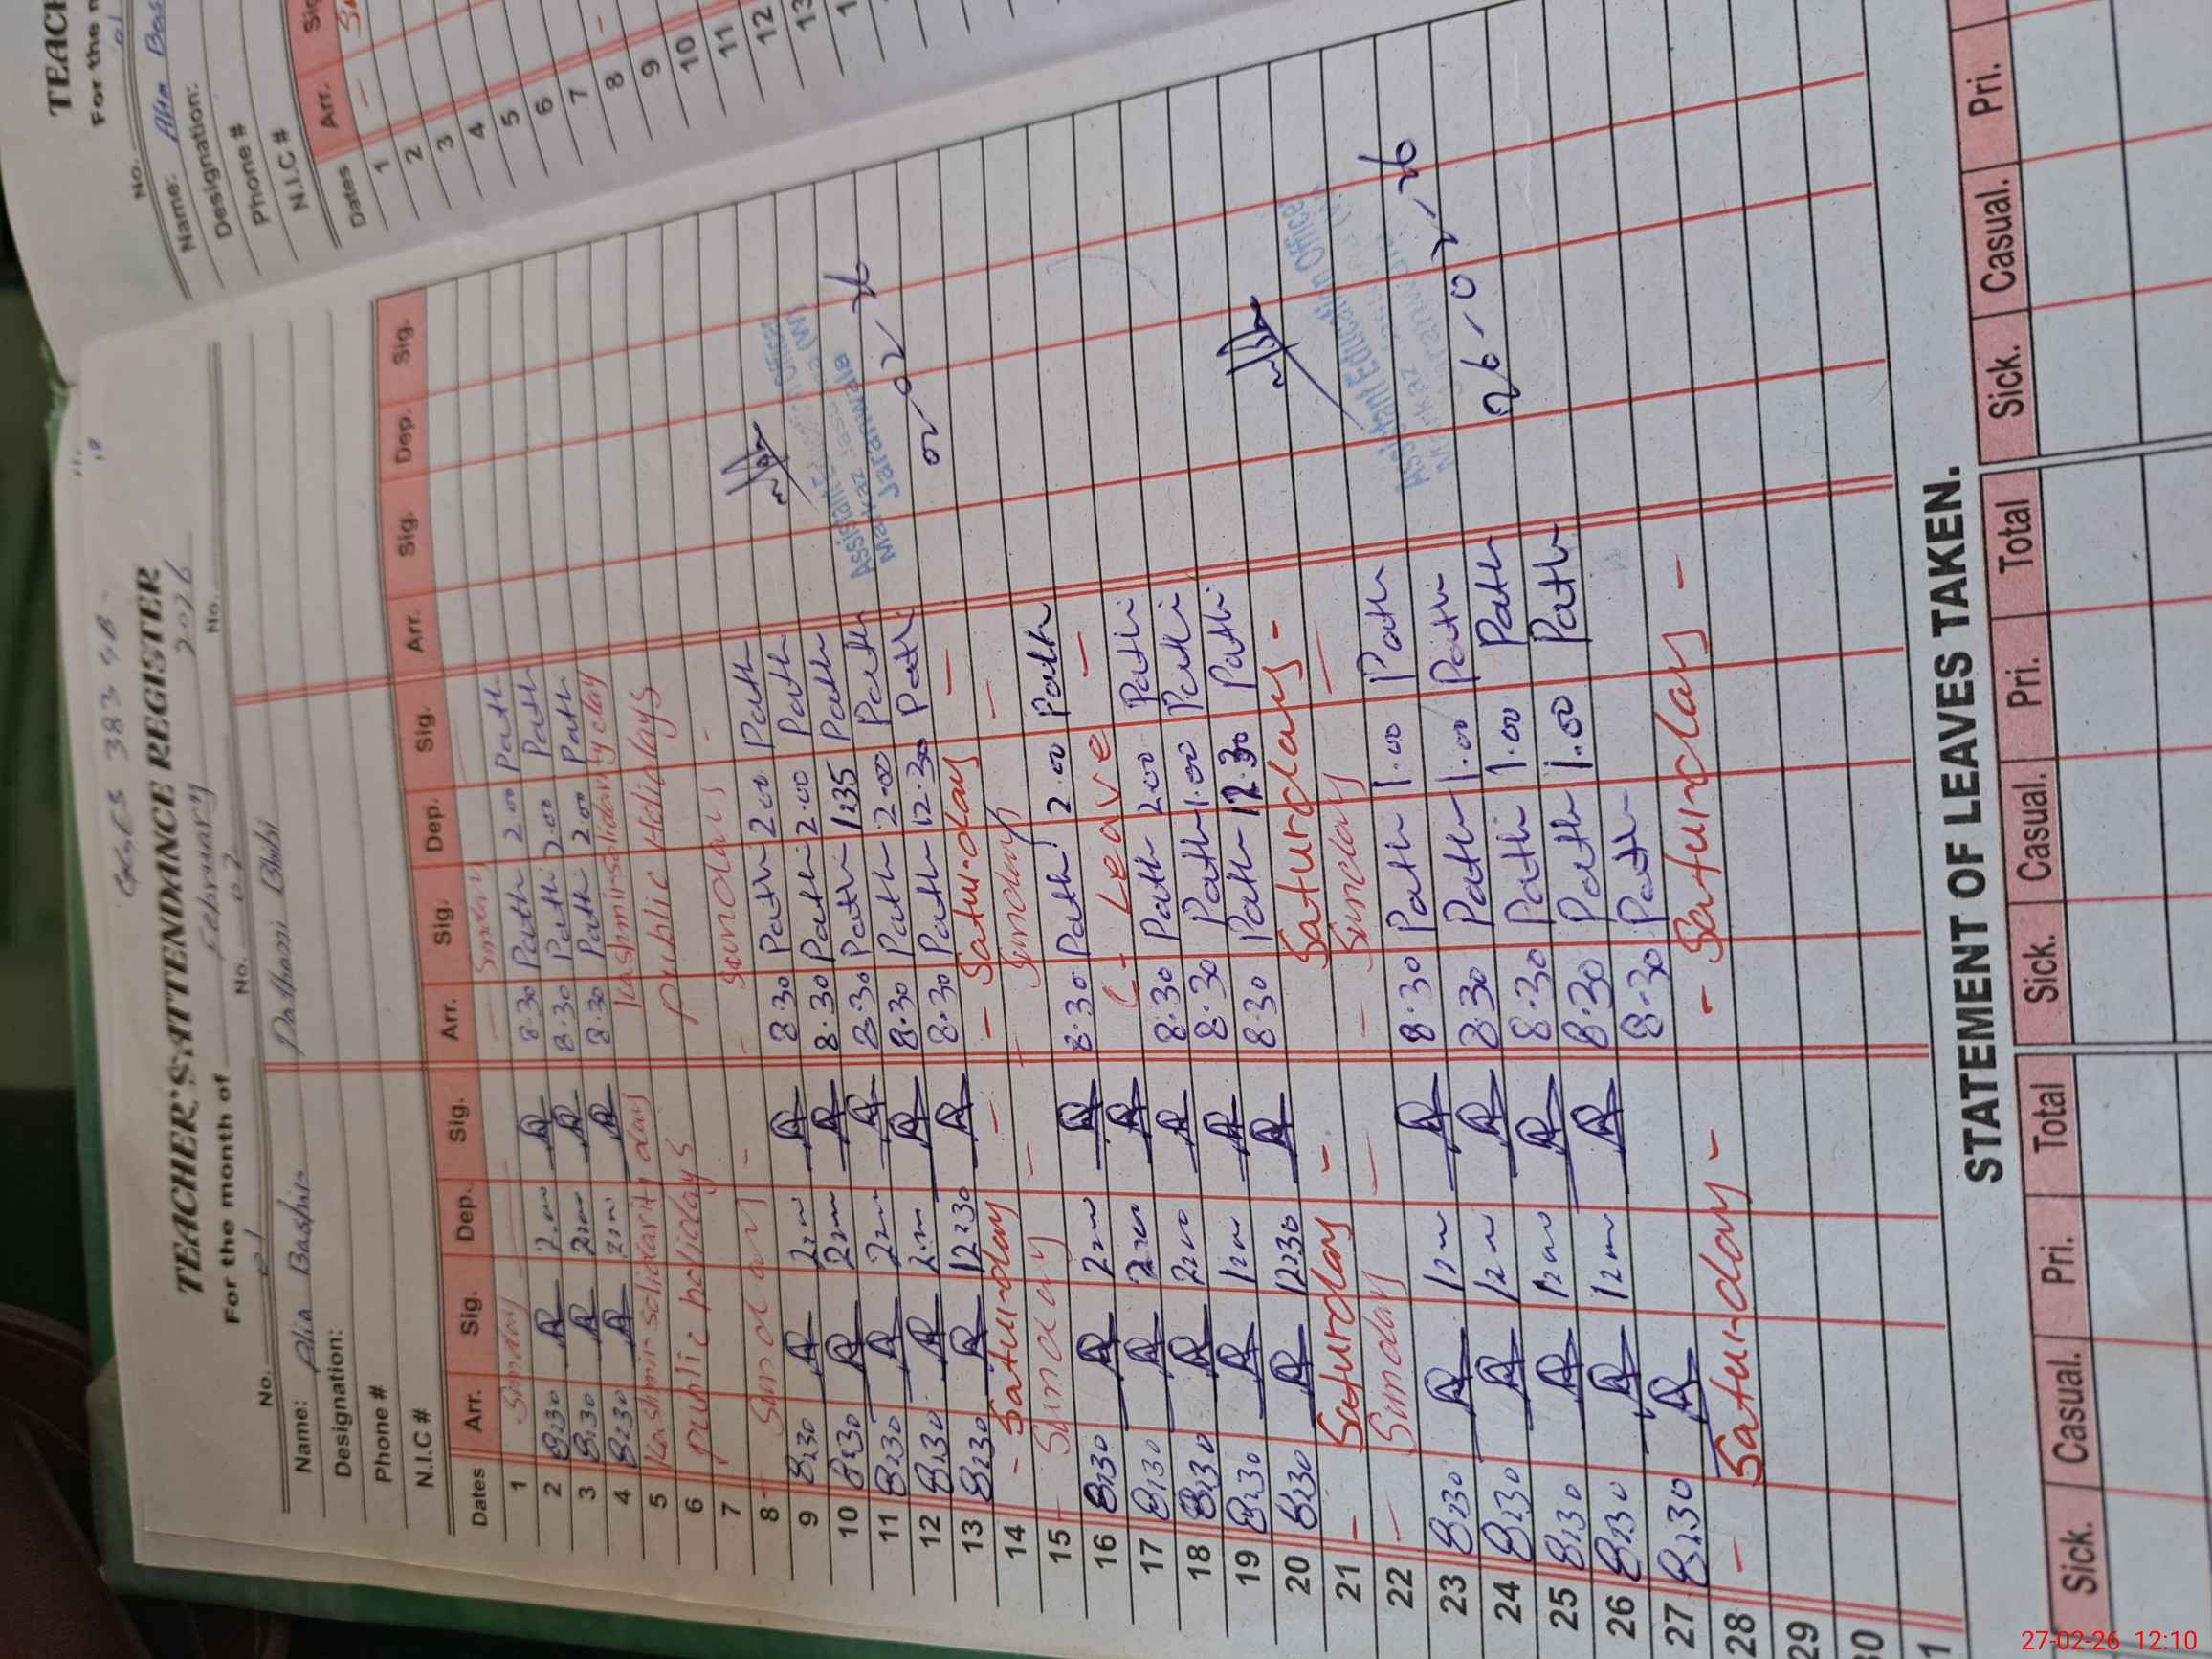 GGES 383 GB
TEACHER'S ATTENDANCE REGISTER
For the month of February 2026
No. 01 No. 02 No.
Name: Alia Bashir Pathani Bibi
Designation:
Phone #
N.I.C #
Dates Arr. Sig. Dep. Sig. Arr. Sig. Dep. Sig. Arr. Sig. Dep. Sig.
1 Sunday Sunday
2 8:30 2:00 8.30 Path 2.00 Path
3 8:30 2:00 8.30 Path 2.00 Path
4 8:30 2:00 8.30 Path 2.00 Path
5 Kashmir solidarity day Kashmir solidarity day
6 public holidays public Holidays
7
8 - Sunday - - Sunday -
9 8:30 2:00 8.30 Path 2.00 Path
10 8:30 2:00 8.30 Path 2.00 Path
11 8:30 2:00 8.30 Path 1:35 Path
12 8:30 2:00 8.30 Path 2.00 Path
13 8:30 12:30 8.30 Path 12.30 Path
Assistant Education Officer
Markaz
Jaranwala
14 - Saturday - - Saturday -
15 - Sunday - - Sunday -
16 8:30 2:00 8.30 Path 2.00 Path
17 8:30 2:00 C - Leave -
18 8:30 2:00 8.30 Path 2.00 Path
19 8:30 1:00 8.30 Path 1.00 Path
20 8:30 12:30 8.30 Path 12.30 Path
21 - Saturday - Saturday -
22 - Sunday - - Sunday -
Assistant Education Officer
Markaz
23 8:30 1:00 8.30 Path 1.00 Path
24 8:30 1:00 8.30 Path 1.00 Path
25 8:30 1:00 8.30 Path 1.00 Path 26-02-26
26 8:30 1:00 8.30 Path 1.00 Path
27 8:30 8.30 Path
28 - Saturday - - Saturday -
29
30
1
STATEMENT OF LEAVES TAKEN.
Sick. Casual. Pri. Total Sick. Casual. Pri. Total Sick. Casual. Pri.
TEACH
For the m
No. 01
Name: Alia Bas
Designation:
Phone #
N.I.C #
Dates Arr. Sig
1
2
3
4
5
6
7
8
9
10
11
12
13
27-02-26 12:10